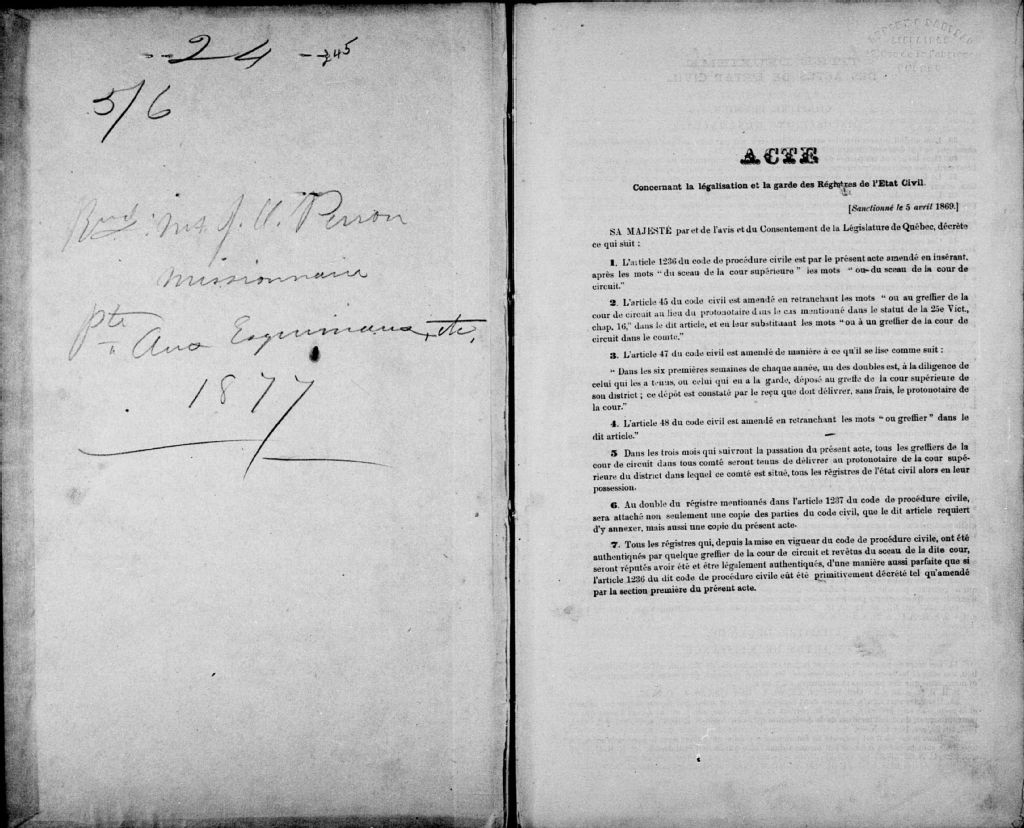 24 -245
5/6
Revd: Mr J. O. Perron
Missionnaire
Pte
Aux Esquimaux, etc,
1877
ACTE
Concernant la légalisation et la garde des Régistres de l'Etat Civil.
[Sanctionné le 5 avril 1869.]
SA MAJESTÉ par et de l'avis et du Consentement de la Législature de Québec, décrète
ce qui suit :
1. L'article 1236 du code de procédure civile est par le présent acte amendé en insérant,
après les mots " du sceau de la cour supérieure " les mots " ou du sceau de la cour de
circuit."
2. L'article 45 du code civil est amendé en retranchant les mots " ou au greffier de la
cour de circuit au lieu du protonotaire dans le cas mentionné dans le statut de la 25e Vict.,
chap. 16," dans le dit article, et en leur substituant les mots "ou à un greffier de la cour de
circuit dans le comté."
3. L'article 47 du code civil est amendé de manière à ce qu'il se lise comme suit :
" Dans les six premières semaines de chaque année, un des doubles est, à la diligence de
celui qui les a tenus, ou celui qui en a la garde, déposé au greffe de la cour supérieure de
son district ; ce dépôt est constaté par le reçu que doit délivrer, sans frais, le protonotaire de
la cour."
4. L'article 48 du code civil est amendé en retranchant les mots " ou greffier " dans le
dit article."
5 Dans les trois mois qui suivront la passation du présent acte, tous les greffiers de la
cour de circuit dans tous comté seront tenus de délivrer au protonotaire de la cour supé-
rieure du district dans lequel ce comté est situé, tous les régistres de l'état civil alors en leur
possession.
6. Au double du régistre mentionnés dans l'article 1237 du code de procédure civile,
sera attaché non seulement une copie des parties du code civil, que le dit article requiert
d'y annexer, mais aussi une copie du présent acte.
7. Tous les régistres qui, depuis la mise en vigueur du code de procédure civile, ont été
authentiqués par quelque greffier de la cour de circuit et revêtus du sceau de la dite cour,
seront réputés avoir été et être légalement authentiqués, d'une manière aussi parfaite que si
l'article 1236 du dit code de procédure civile eût été primitivement décrété tel qu'amendé
par la section première du présent acte.